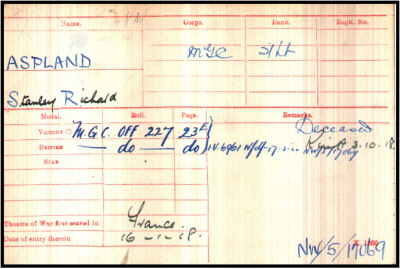 Name. Corps. Rank. Regtl. No.
ASPLAND MGC 2/Lt
Stanley Richard
Medal. Roll. Page. Remarks.
VICTORY M.G.C. OFF 227 23E Deceased
BRITISH do do K in A 3.10.18.
STAR NW/5/17069
Theatre of War first served in France.
Date of entry therein 16-1-18.
NW/5/17069